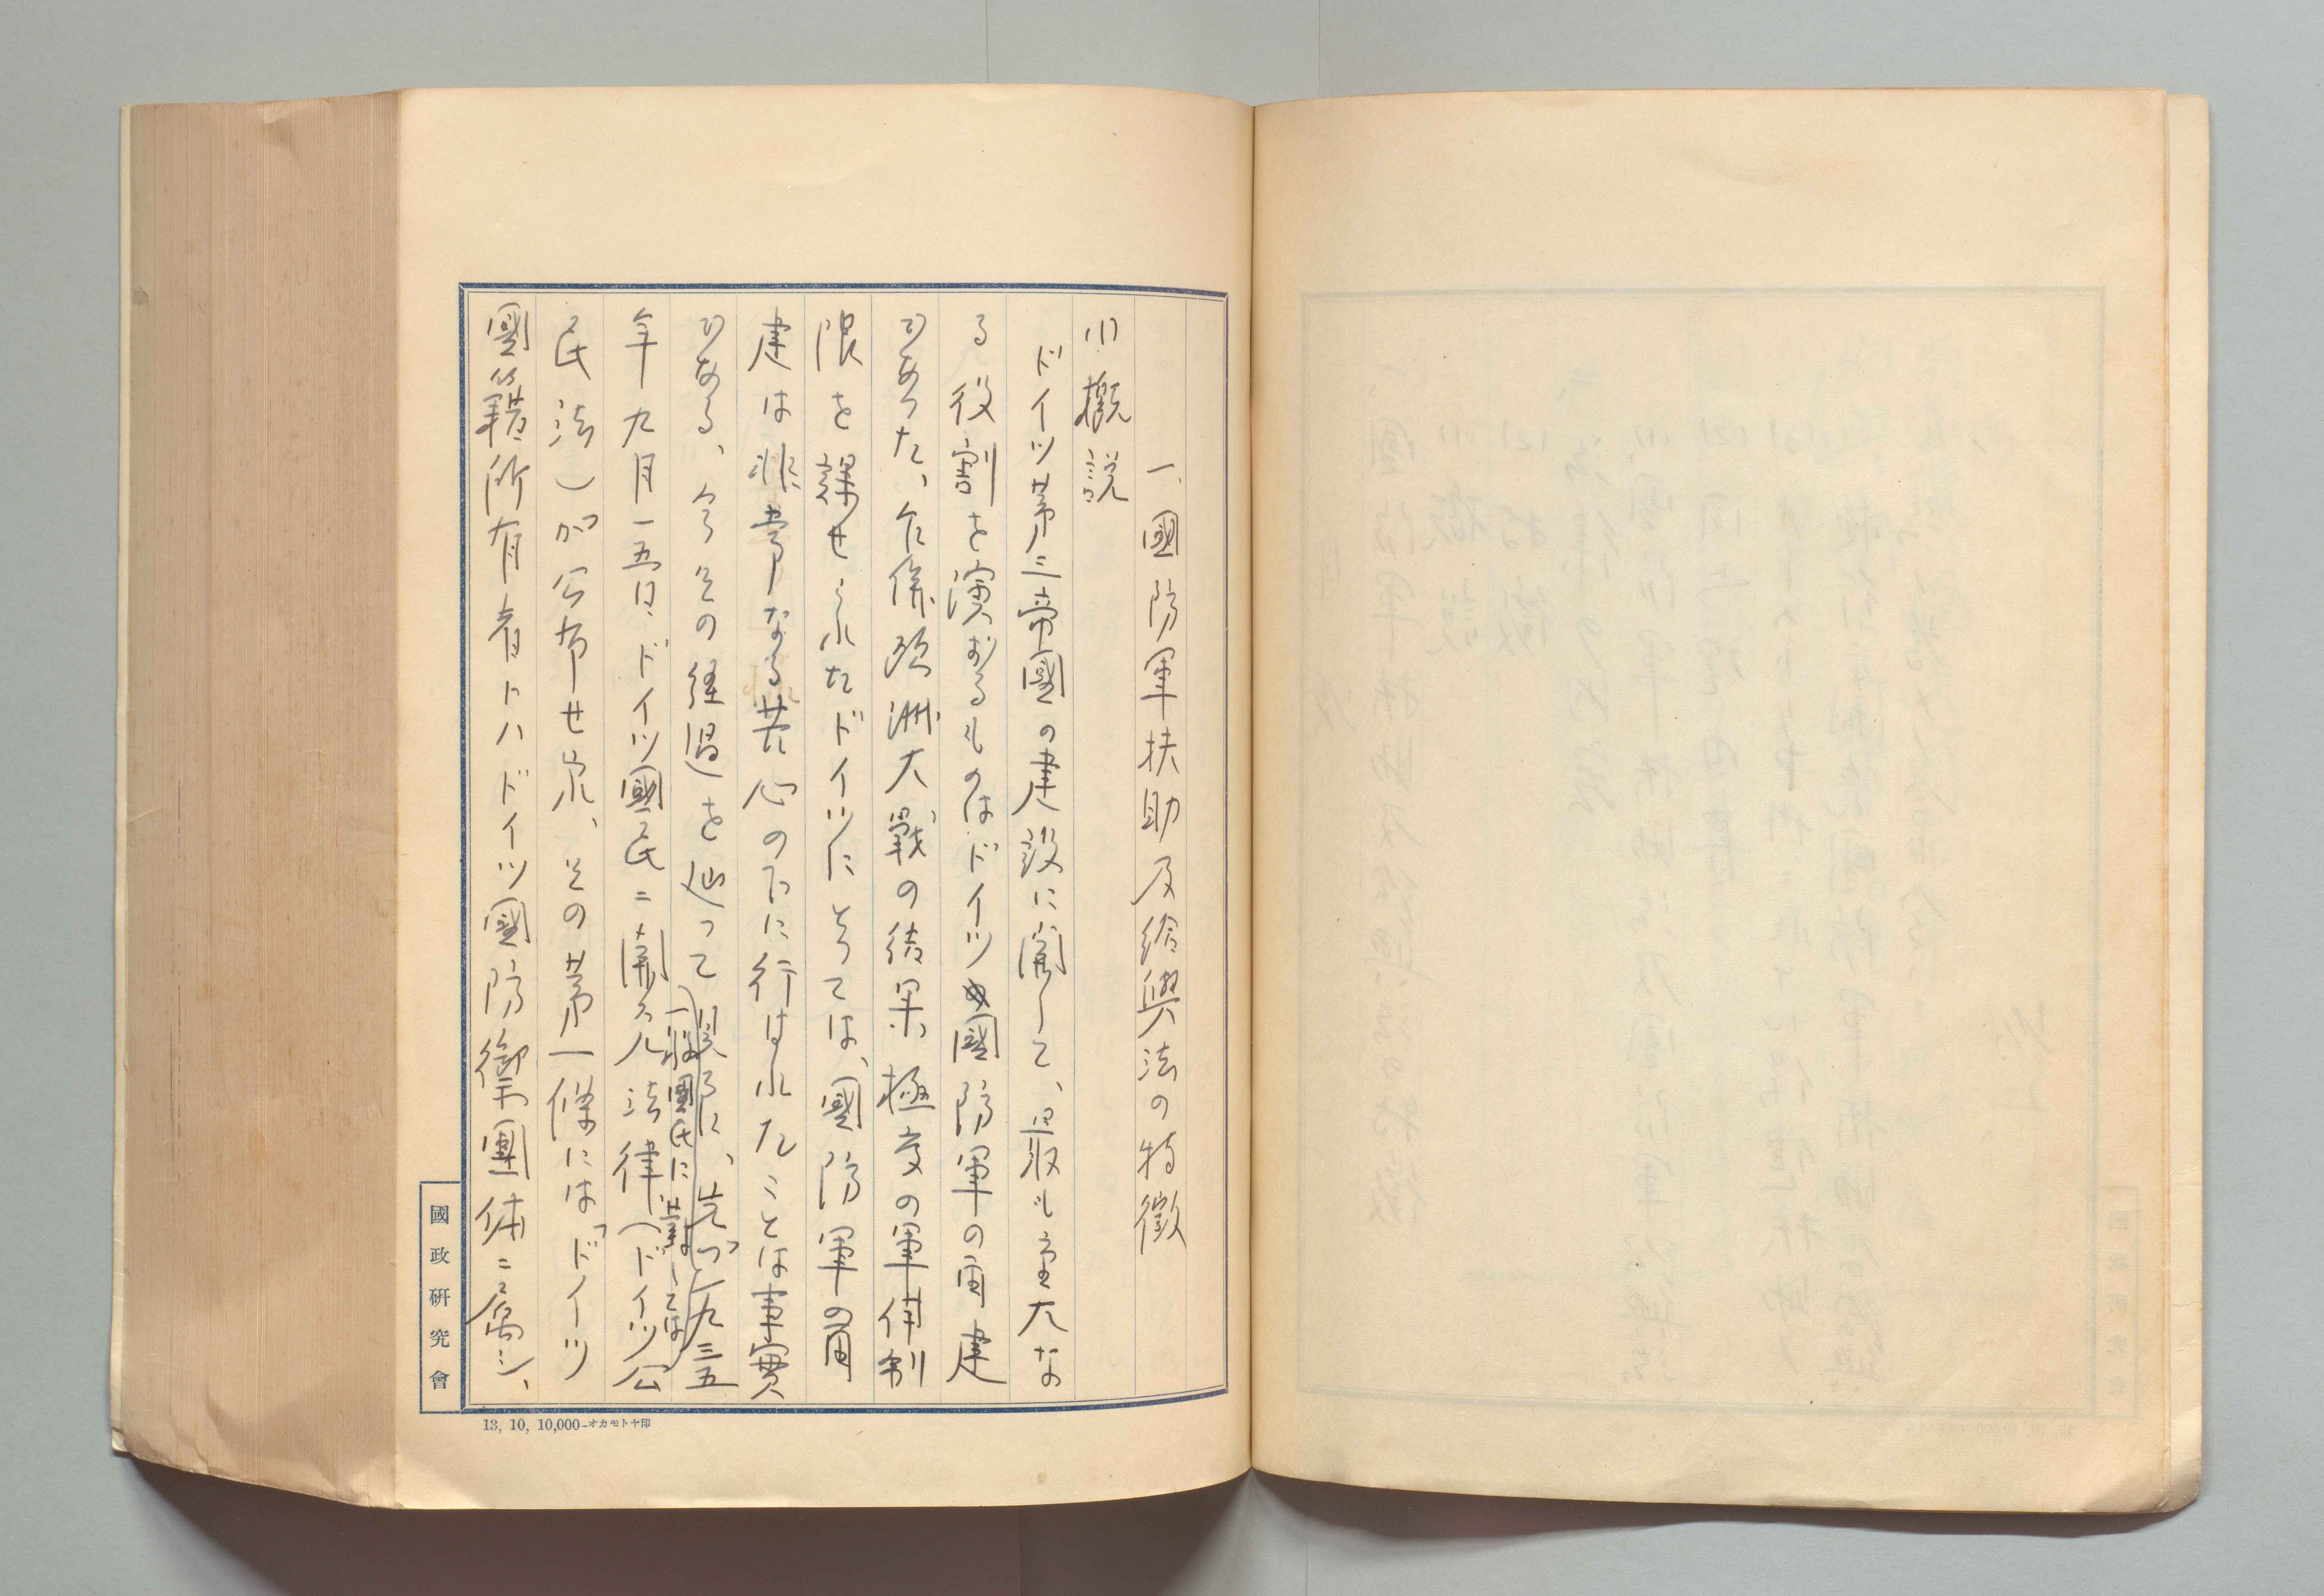 一、國防軍扶助及給與法の特徵
(1) 概説
ドイツ第三帝國の建設に關して、最も重大な
る役割を演ずるものはドイツ國防軍の再建
であつた、乍併歐洲大戰の結果極度の軍備制
限を課せられたドイツにとつては、國防軍の再
建は非常なる苦心の下に行はれたことは事實
である、今その経過を辿つて見るに、先づ一九三五
(一般國民に對しては)
年九月一五日、ドイツ國民ニ關スル法律(ドイツ公
民法)が公布せられ、その第一條には「ドイツ
國籍所有者トハドイツ國防禦團体ニ屬シ、
國政研究會
13, 10, 10,000—オカモトヤ印